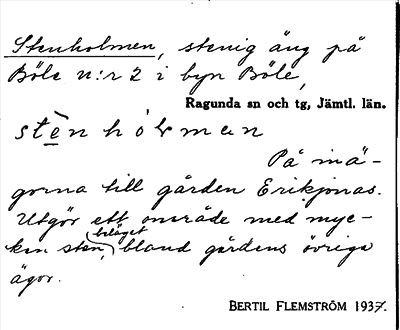 Stenholmen, stenig äng på
Böle n:r 2 i byn Böle,
Ragunda sn och tg, Jämtl. län.
stènhòlmen
På inä-
gorna till gården Erikjonas.
Utgör ett område med myc-
ken sten, beläget bland gårdens övriga
ägor.
BERTIL FLEMSTRÖM 1937.